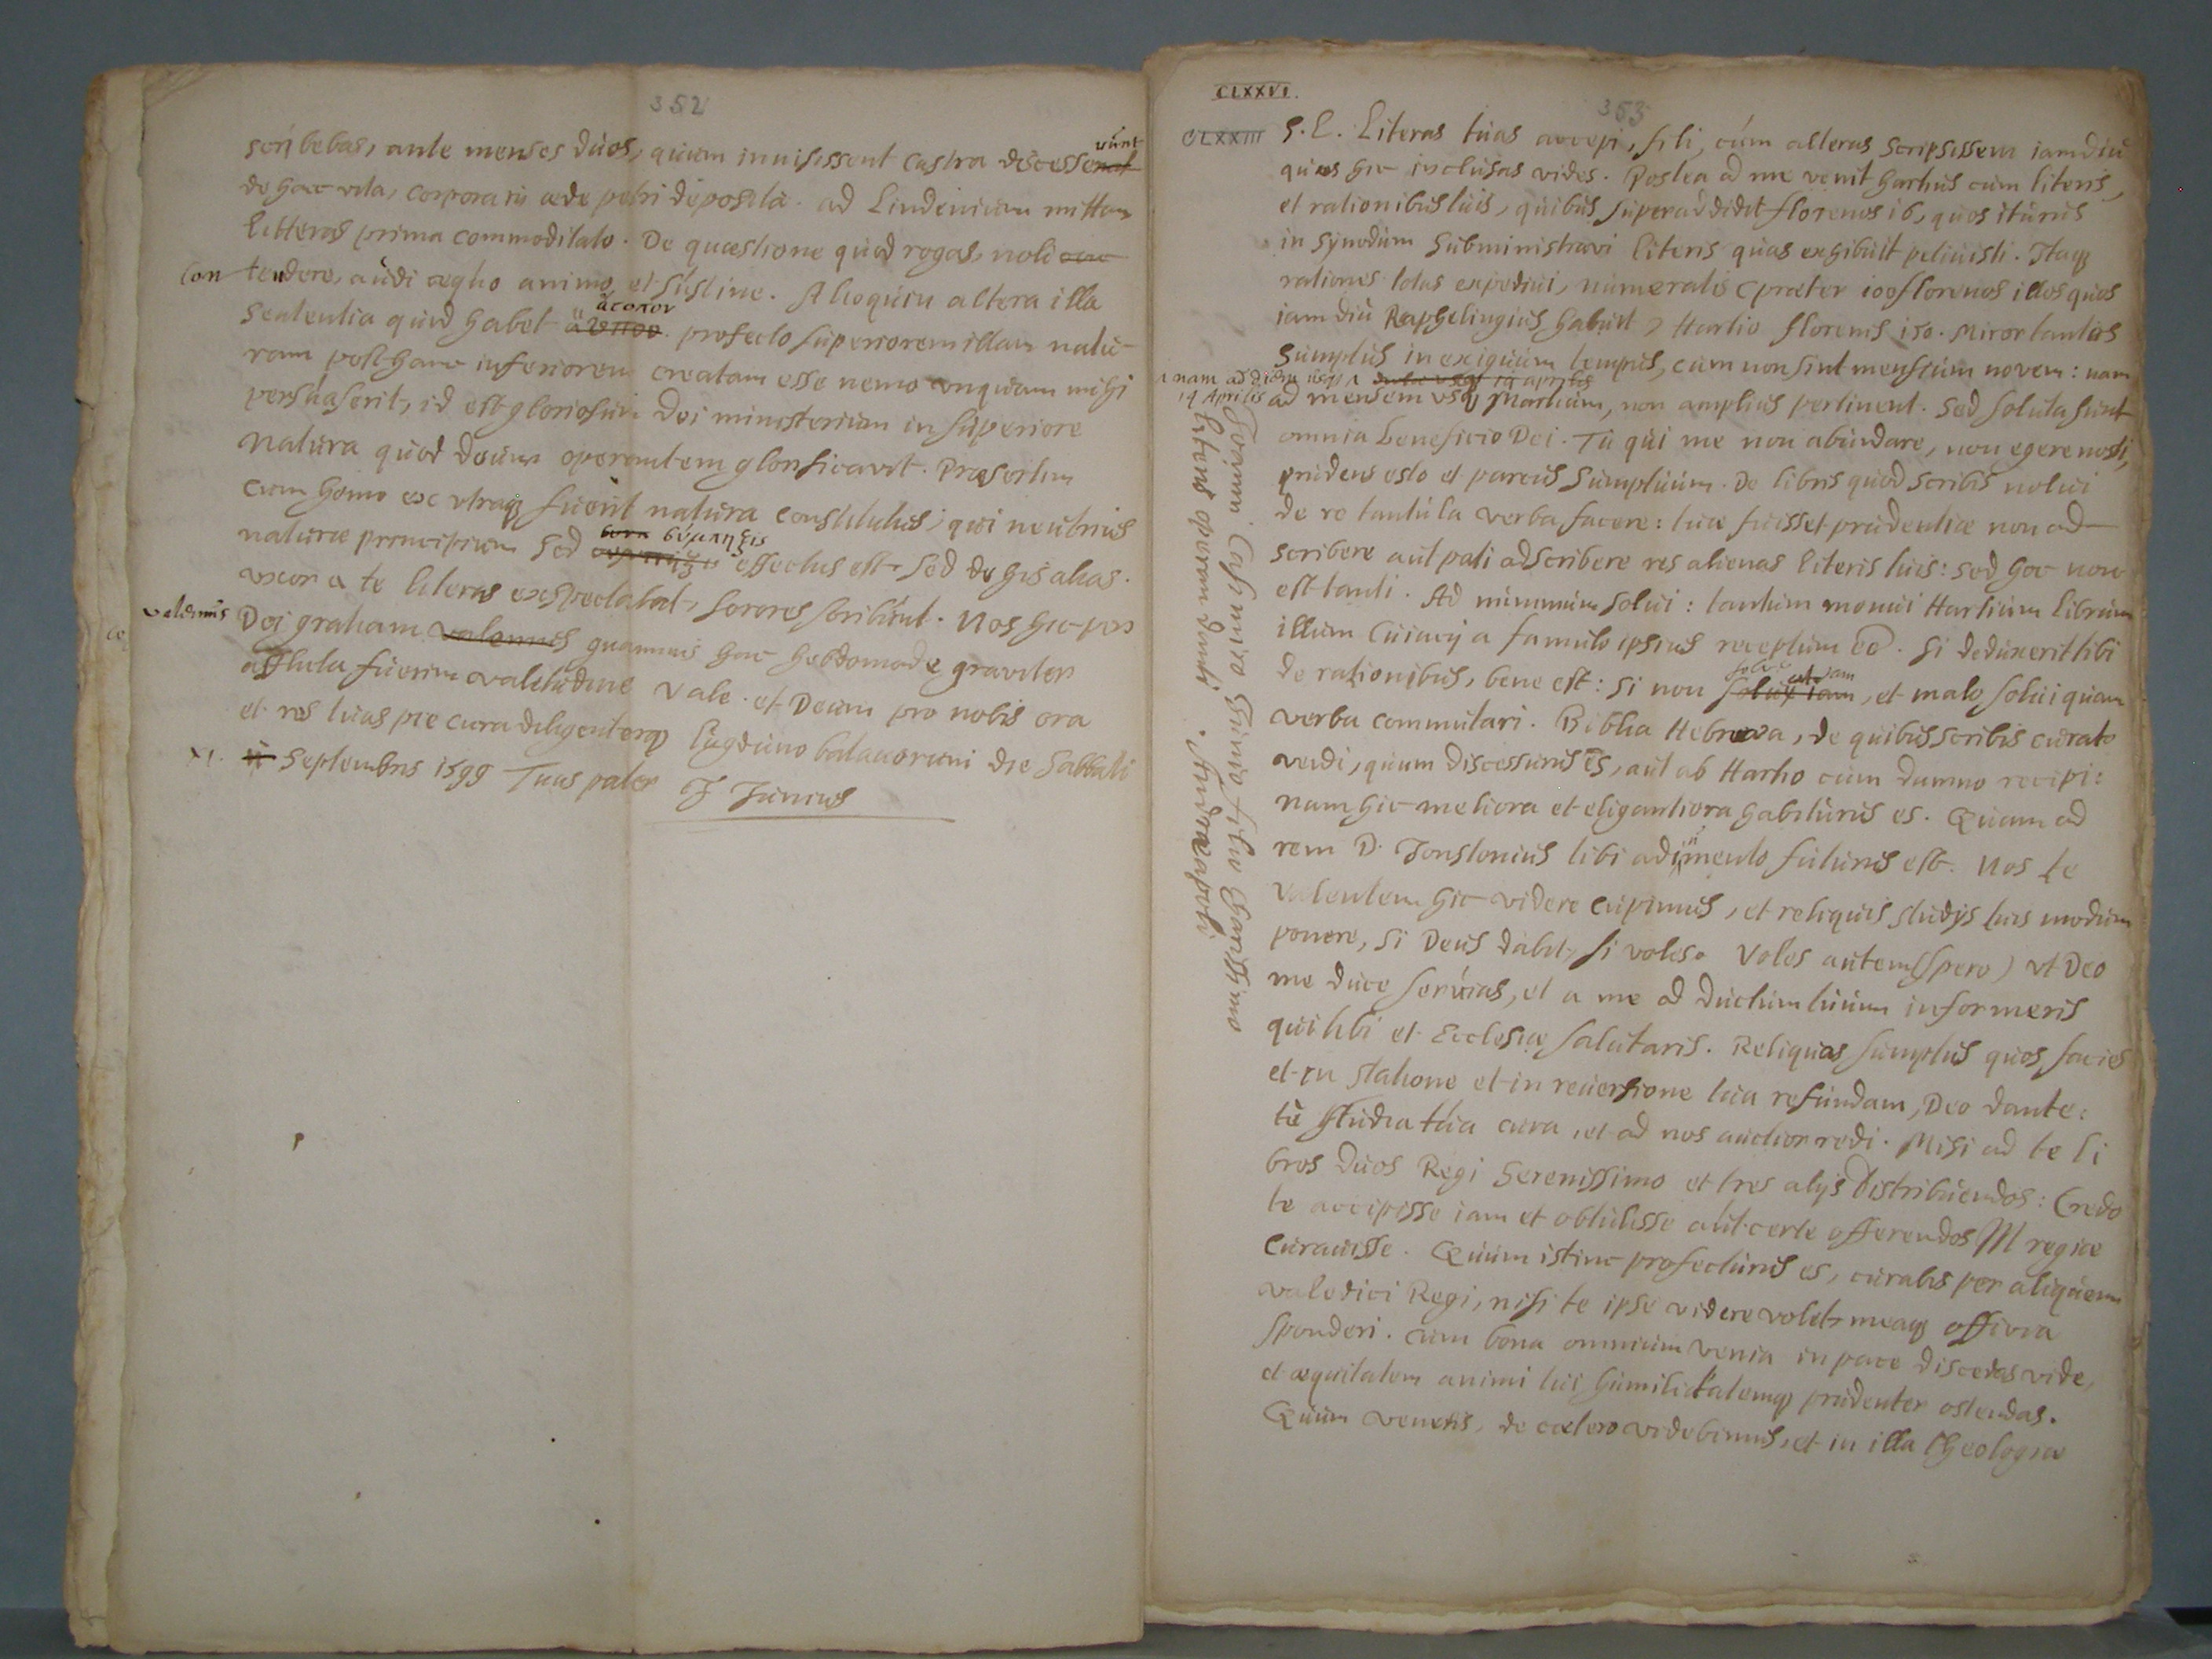 352
scribebas, ante menses duos, quum inuisissent castra discesserunt
de hac vita, corpora in æde petri deposita. ad Lindenium mittam
litteras prima commoditate. De quæstione quod rogas, noli
contendere, audi æquo animo et sustine. Alioquin altera illa
sententia quid habet ἄτοπον profecto superiorem illam natu-
ram post hanc inferiorem creatam esse nemo unquam mihi
persuaserit, id est gloriosum Dei ministerium in superiore
natura quod deum operantem glorificavit. Præsertim
cum homo ex utraq fuerit natura constitutus, qui neutrius
naturæ principium sed σύμπηξις effectus est. Sed de his alias.
uxor a te literas exspectabat, sorores scribunt. Nos hic per
Dei gratiam valemus quamuis hac hebdomade graviter
afflicta fuerim valetudine Vale et Deum pro nobis ora
et res tuas pie cura diligenterq Lugduno batavorum die Sabbati
XI. Septembris 1599 Tuus pater F Junius
CLXXVI.
353
CLXXIII
S. L. Literas tuas accepi, fili, cum alteras scripsissem iamdiu
quas hic inclusas vides. Postea ad me venit Hartius cum literis,
et rationibus tuis, quibus superaddidit florenos 16, quos iturus
in synodum subministravi literis quas exhibuit petiuisti. Itaq
rationes totas expediui, numeratis præter 100 florenos illos quos
iamdiu Raphelingius habuit, Hartio florenis 150. Miror tantus
sumptus in exiguum tempus, cum non sint mensium novem: nam
nam ad diem usq 19 Aprilis
ad mensem usq Martium, non amplius pertinent. Sed soluta sunt
omnia beneficio Dei. Tu qui me non abundare, non egere nosti,
prudens esto et parcus sumptuum. De libris quod scribis nolui
de re tantula verba facere: tuæ fuisset prudentiæ non ad-
scribere aut pati adscribere res alienas literis tuis: sed hoc non
est tanti. Ad nummum solui: tantum monui Hartium librum
illum Cuiacij a famulo ipsius receptum eē. Si deduxerit tibi
de rationibus, bene est: si non solui iam, et malo solui quam
verba commutari. Biblia Hebræa, de quibus scribis curato
vendi, quum discessurus es, aut ab Hartio cum damno recipi:
nam hic meliora et eligantiora habiturus es. Quam ad
rem D. Jonstonius tibi adiumento futurus est. Nos te
valentem hic videre cupimus, et reliquis studijs tuis modum
ponere, si Deus dabit, si voles. Voles autem (spero) ut Deo
me duce seruias, et a me ad ductum tuum informeris
qui tibi et Ecclesiæ salutaris. Reliquos sumptus quos facies
et in statione et in reuersione tua refundam, Deo dante:
tu studia tua cura, et ad nos auctior redi. Misi ad te li
bros duos Regi Serenissimo et tres alijs distribuendos: Credo
te accipisse iam et obtulisse aut certe offerendos M regiæ
curauisse. Quum istinc profecturus es, curabis per aliquem
valedici Regi, nisi te ipse videre volet, meaq officia
sponderi. cum bona omnium venia in pace discedas vide,
et æquitatem animi tui humilitatemq prudenter ostendas.
Quum veneris, de cætero videbimus, et in illa theologiæ
Joanni Casimiro Junio filio charissimo
literis operam danti. Andreapoli